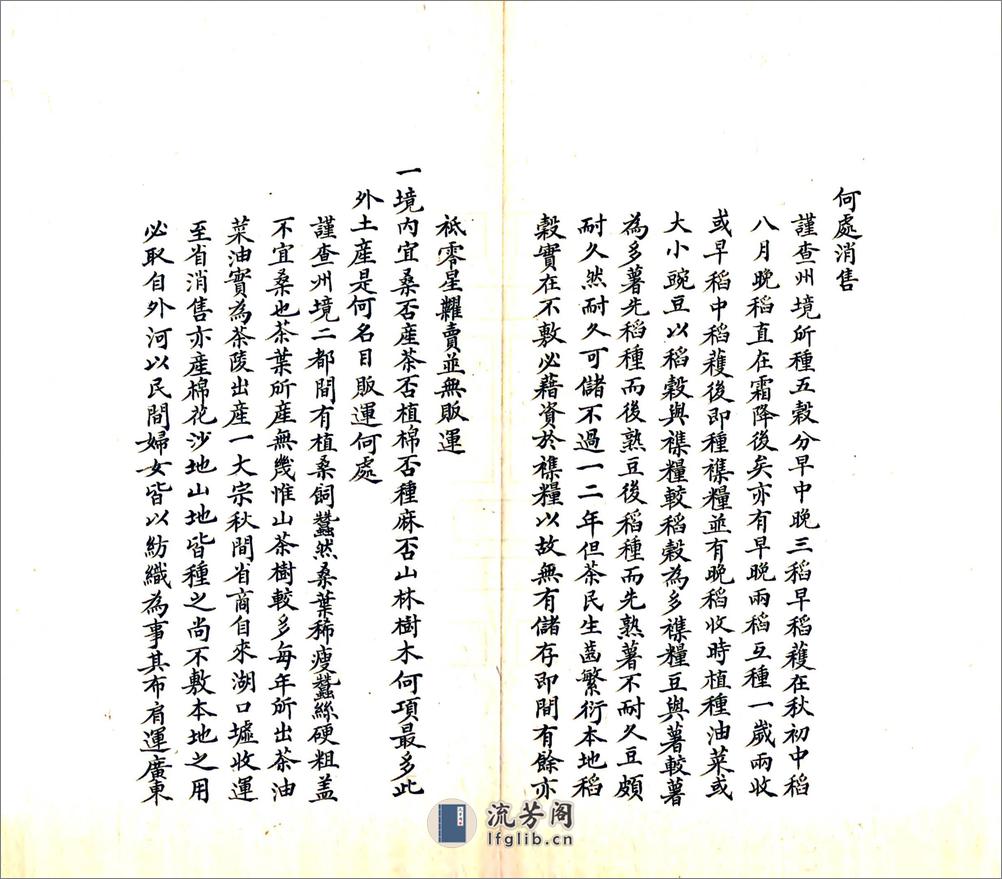 何處消售
謹查州境所種五穀分早中晚三稻早稻穫在秋初中稻
八月晚稻直在霜降後矣亦有早晚兩稻互種一歲兩收
或早稻中稻穫後即種襍糧並有晚稻收時植種油菜或
大小豌豆以稻穀與襍糧較稻穀為多襍糧豆與薯較薯
為多薯先稻種而後熟豆後稻種而先熟薯不耐久豆頗
耐久然耐久可儲不過一二年但茶民生齒繁衍本地稻
穀實在不敷必藉資於襍糧以故無有儲存即間有餘亦
祇零星糶賣並無販運
一境內宜桑否產茶否植棉否種麻否山林樹木何項最多此
外土產是何名目販運何處
謹查州境二都間有植桑飼蠶然桑葉稀瘦蠶絲硬粗盖
不宜桑也茶葉所產無幾惟山茶樹較多每年所出茶油
菜油實為茶陵出產一大宗秋間省商自來湖口墟收運
至省消售亦產棉花沙地山地皆種之尚不敷本地之用
必取自外河以民間婦女皆以紡織為事其布肩運廣東
流芳阁
lfglib.cn